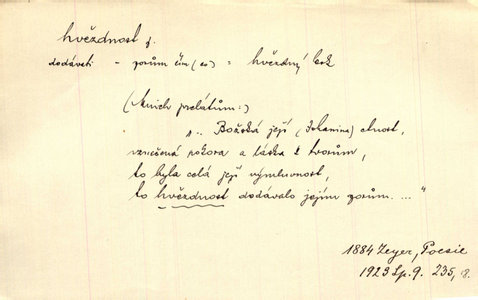 hvězdnost f.
dodáveti – zorům čím (co) = hvězdný lesk
(Mnich prelátům:)
„.. Božská její (Johanina) ctnost,
vznešená pokora a láska k tvorům,
to byla celá její výmluvnost,
to hvězdnost dodávalo jejím zorům. ..."
1884 Zeyer, Poesie
1923 Sp. 9. 235, 8.